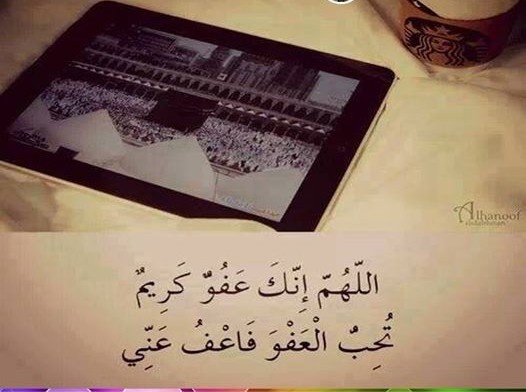 Alhanoof
اللّهُمّ إِنّكَ عَفُوٌ كَرِيمٌ
تُحِبٌ الْعَفْوَ فَاعْفُ عَنِّي